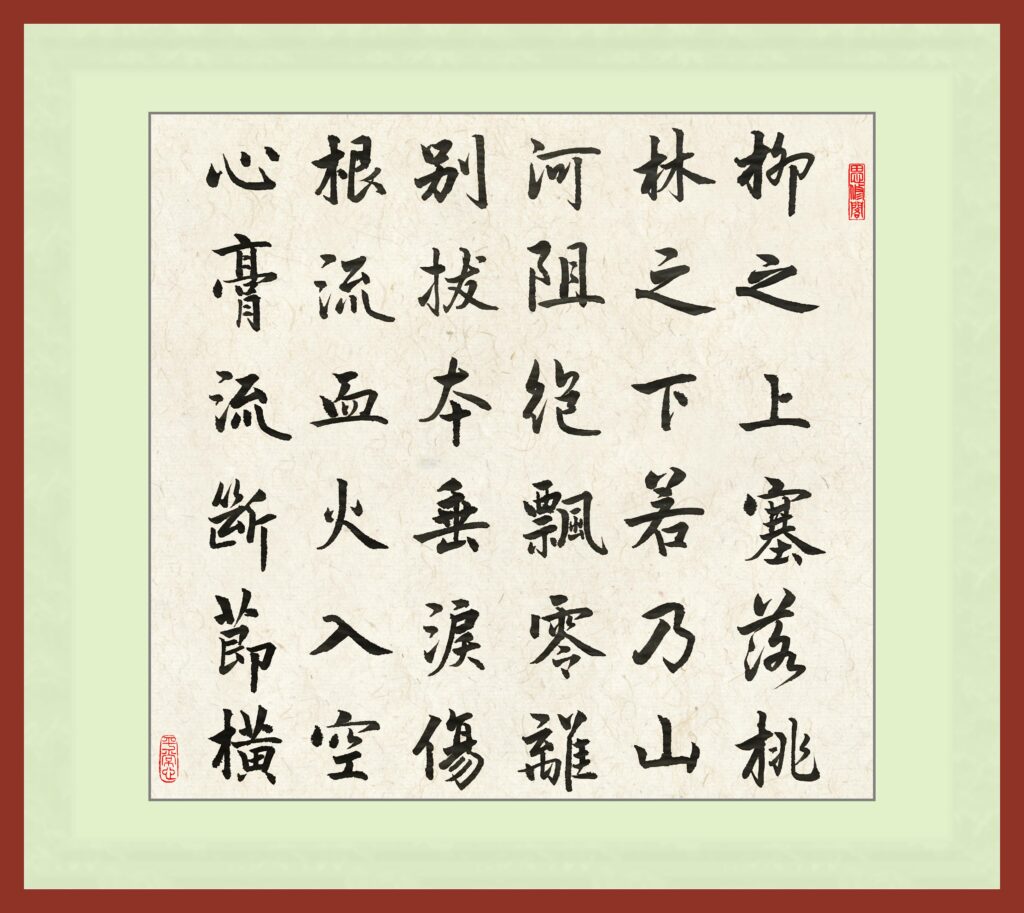 柳之上塞落桃
林之下若乃山
河阻絕飄零離
別拔本垂淚傷
根流血火入空
心膏流斷節橫
平常心